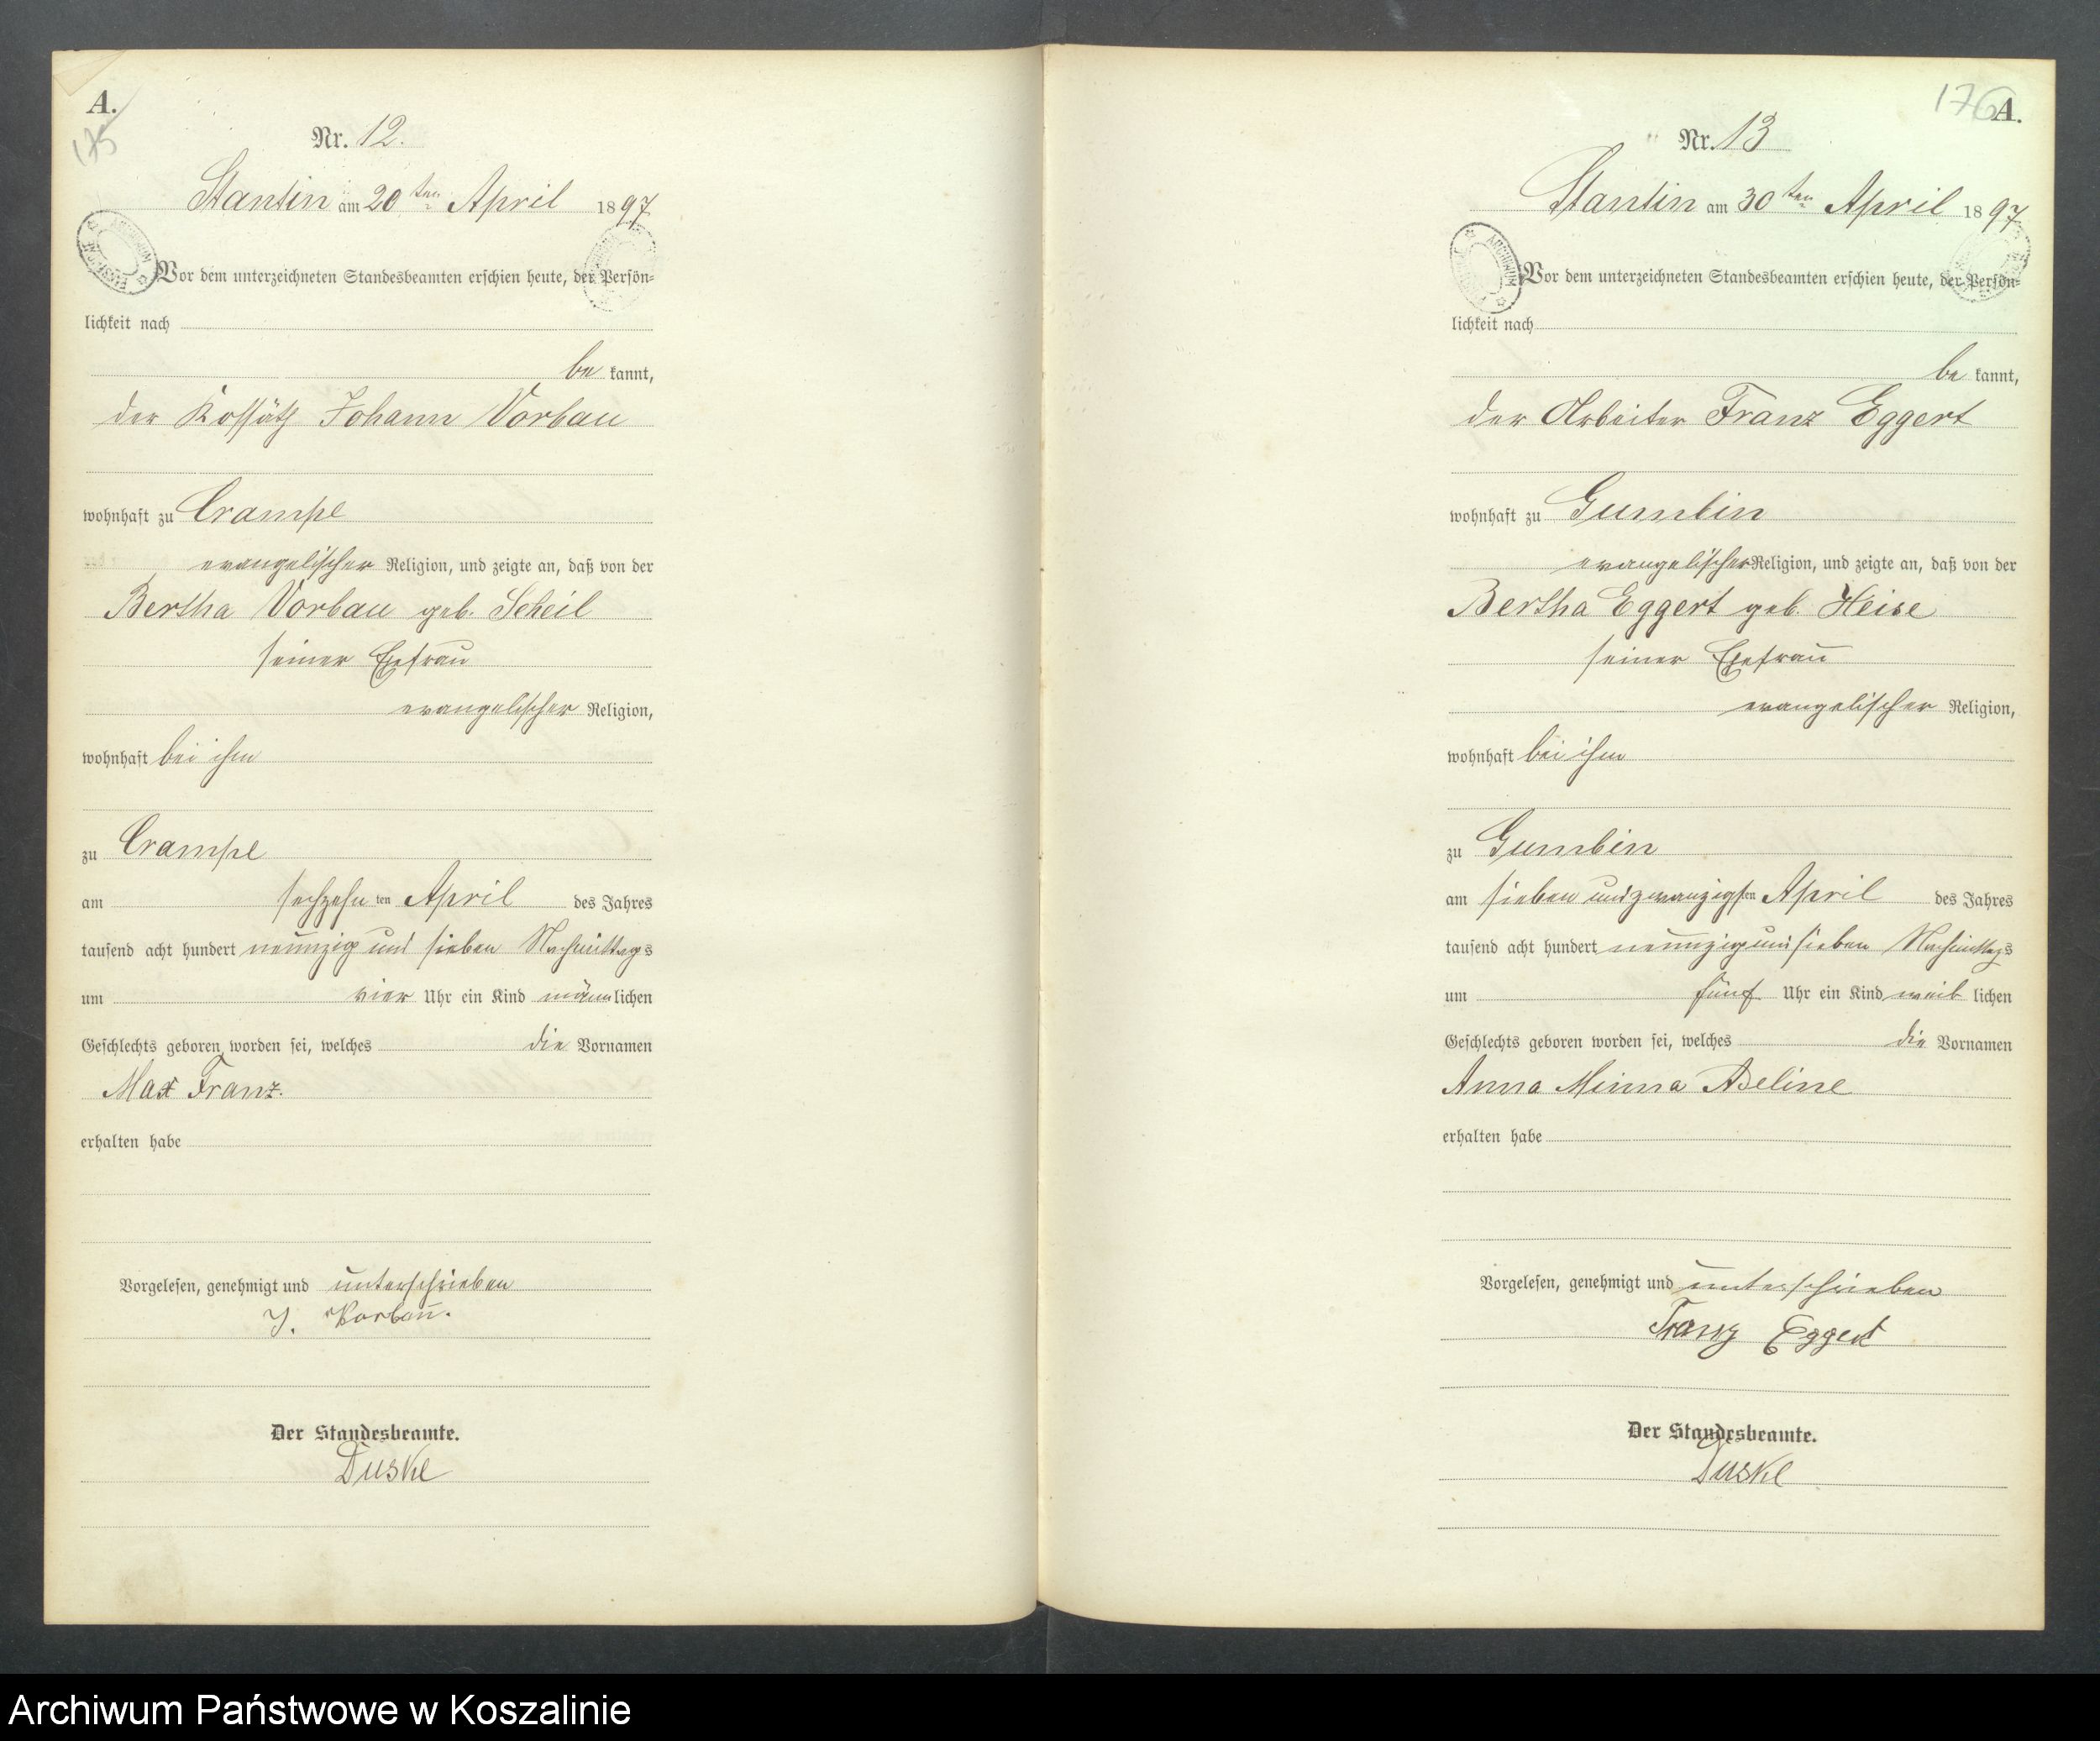 A.
175
Nr. 12.
Stantin am 20ten April 1897
Vor dem unterzeichneten Standesbeamten erschien heute, der Persön-
lichkeit nach
be kannt,
der Kossäth Johann Vorbau
wohnhaft zu Crampe
evangelischer Religion, und zeigte an, daß von der
Bertha Vorbau geb. Scheil
seiner Ehefrau
evangelischer Religion,
wohnhaft bei ihm
zu Crampe
am sechzehn ten April des Jahres
tausend acht hundert neunzig und sieben Nachmittags
um vier Uhr ein Kind männlichen
Geschlechts geboren worden sei, welches die Vornamen
Max Franz.
erhalten habe
Vorgelesen, genehmigt und unterschrieben
J. Vorbau.
Der Standesbeamte.
Duske
176
A.
Nr. 13
Stantin am 30ten April 1897
Vor dem unterzeichneten Standesbeamten erschien heute, der Persön-
lichkeit nach
be kannt,
der Arbeiter Franz Eggert
wohnhaft zu Gumbin
evangelischer Religion, und zeigte an, daß von der
Bertha Eggert geb. Heise
seiner Ehefrau
evangelischer Religion,
wohnhaft bei ihm
zu Gumbin
am sieben und zwanzigsten April des Jahres
tausend acht hundert neunzig und sieben Nachmittags
um fünf Uhr ein Kind weib lichen
Geschlechts geboren worden sei, welches die Vornamen
Anna Minna Adeline
erhalten habe
Vorgelesen, genehmigt und unterschrieben
Franz Eggert
Der Standesbeamte.
Duske
Archiwum Państwowe w Koszalinie